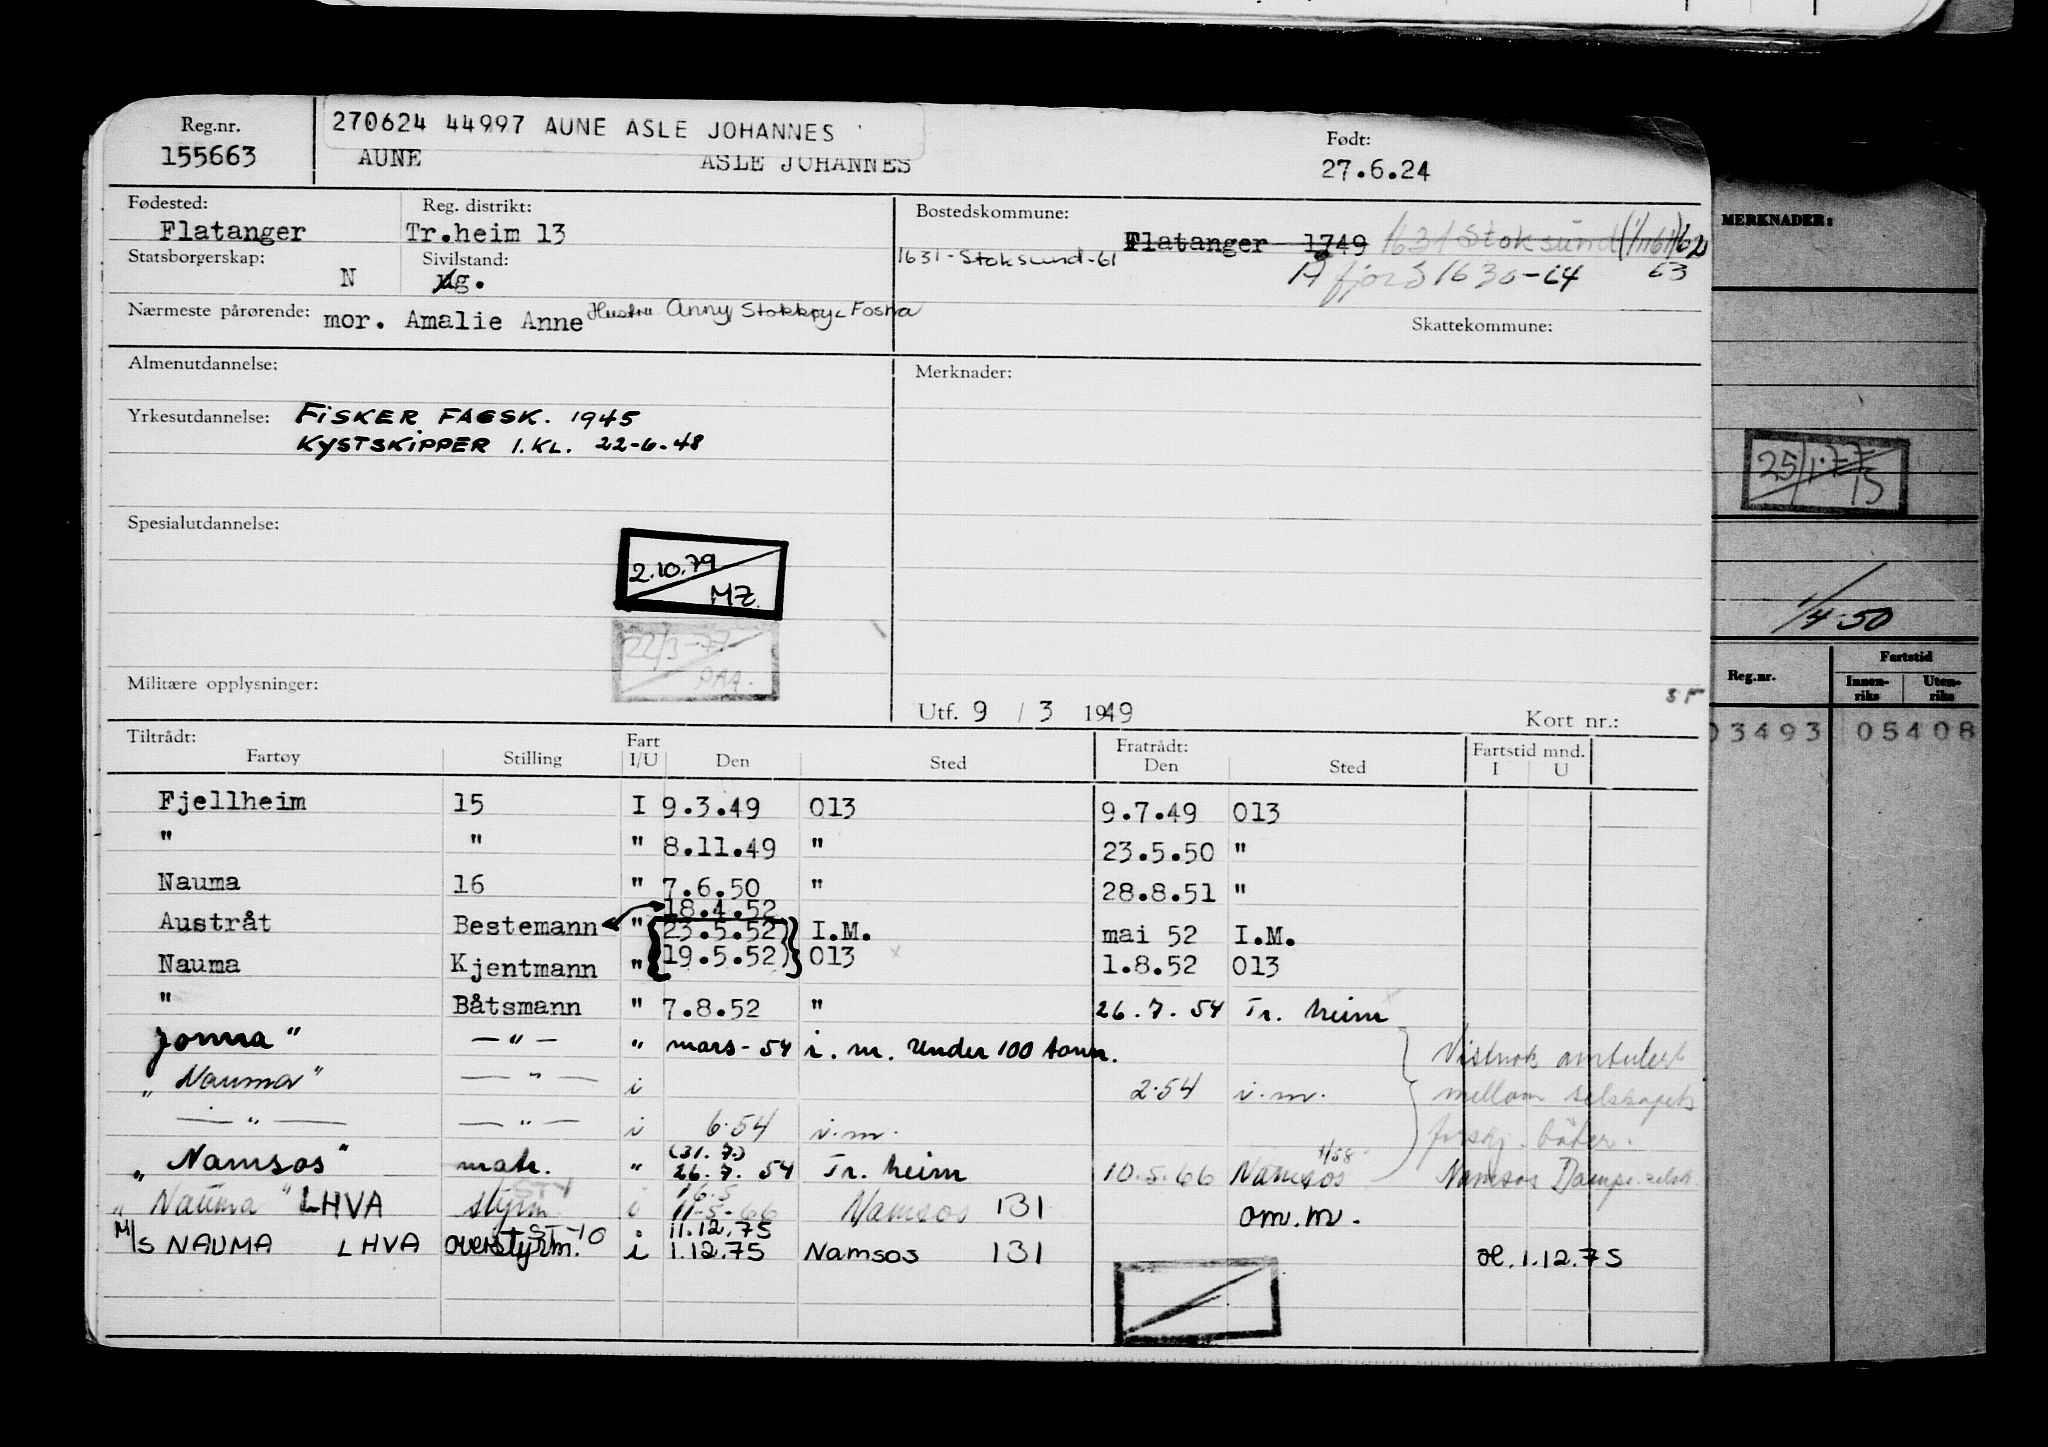 Reg.nr. 270624 44997 AUNE ASLE JOHANNES Født:
155663 AUNE ASLE JOHANNES 27.6.24
Fødested: Reg. distrikt: Bostedskommune:
Flatanger Tr.heim 13 Flatanger 1749 1631 Stoksund (1/1161) 62
Statsborgerskap: Sivilstand: 1631-Stoksund-61
N g. Åfjord 1630-64 63
Nærmeste pårørende: mor. Amalie Anne Hustru Anny Fosna
Skattekommune:
Almenutdannelse: Merknader:
Yrkesutdannelse: FISKER FAGSK. 1945
KYSTSKIPPER 1. KL. 22-6-48
Spesialutdannelse:
2.10.79
MZ.
22/3-77
PAA.
Militære opplysninger:
Utf. 9 / 3 1949 Kort nr.:
Tiltrådt: Fart Fratrådt: Fartstid mnd.
Fartøy Stilling I/U Den Sted Den Sted I U
Fjellheim 15 I 9.3.49 013 9.7.49 013
" " " 8.11.49 " 23.5.50 "
Nauma 16 " 7.6.50 " 28.8.51 "
18.4.52
Austråt Bestemann " 23.5.52) I.M. mai 52 I.M.
Nauma Kjentmann " 19.5.52) 013 1.8.52 013
" Båtsmann " 7.8.52 " 26.7.54 Tr. heim
Jonna" — " — " mars-54 i.m. under 100 tonn. Vistnok ambulert
"Nauma" — " — i 2.54 i.m. mellom selskapets
— " — — " — i 6.54 i.m. forskj. båter.
(31.7.) 1/58
"Namsos" matr. " 26.7.54 Tr. heim 10.5.66 Namsos Namsos Dampsk.selsk
STY 16.5
"Nauma" LHVA styrm i 11-5-66 Namsos 131 om.m.
ST-10 11.12.75
M/S NAUMA LHVA overstyrm. i 1.12.75 Namsos 131 1.12.75
MERKNADER:
25/1-77
1/4-50
Reg.nr. Fartstid
Innen-riks Uten-riks
03493 05408